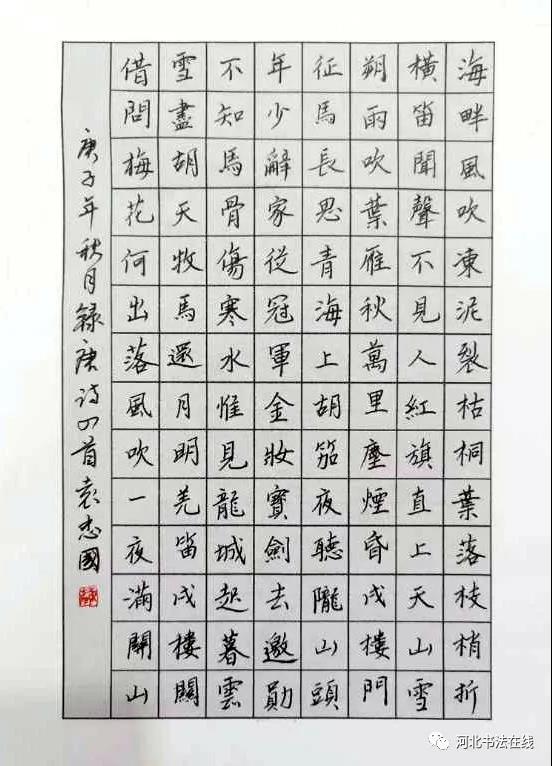 海畔風吹凍泥裂枯桐葉落枝梢折
橫笛聞聲不見人紅旗直上天山雪
朔雨吹葉雁秋萬里塵煙昏戍樓門
征馬長思青海上胡笳夜聽隴山頭
年少辭家從冠軍金妝寶劍去邀勛
不知馬骨傷寒水惟見龍城起暮雲
雪盡胡天牧馬還月明羌笛戍樓關
借問梅花何出落風吹一夜滿關山
庚子年秋月錄唐詩四首袁志國
河北书法在线